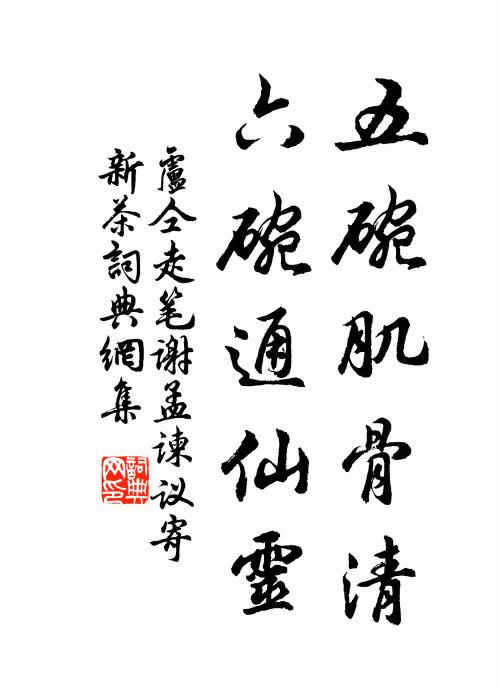 五碗肌骨清
六碗通仙靈
盧仝走笔謝孟諫议寄
新茶詞典網集
詞典
网印